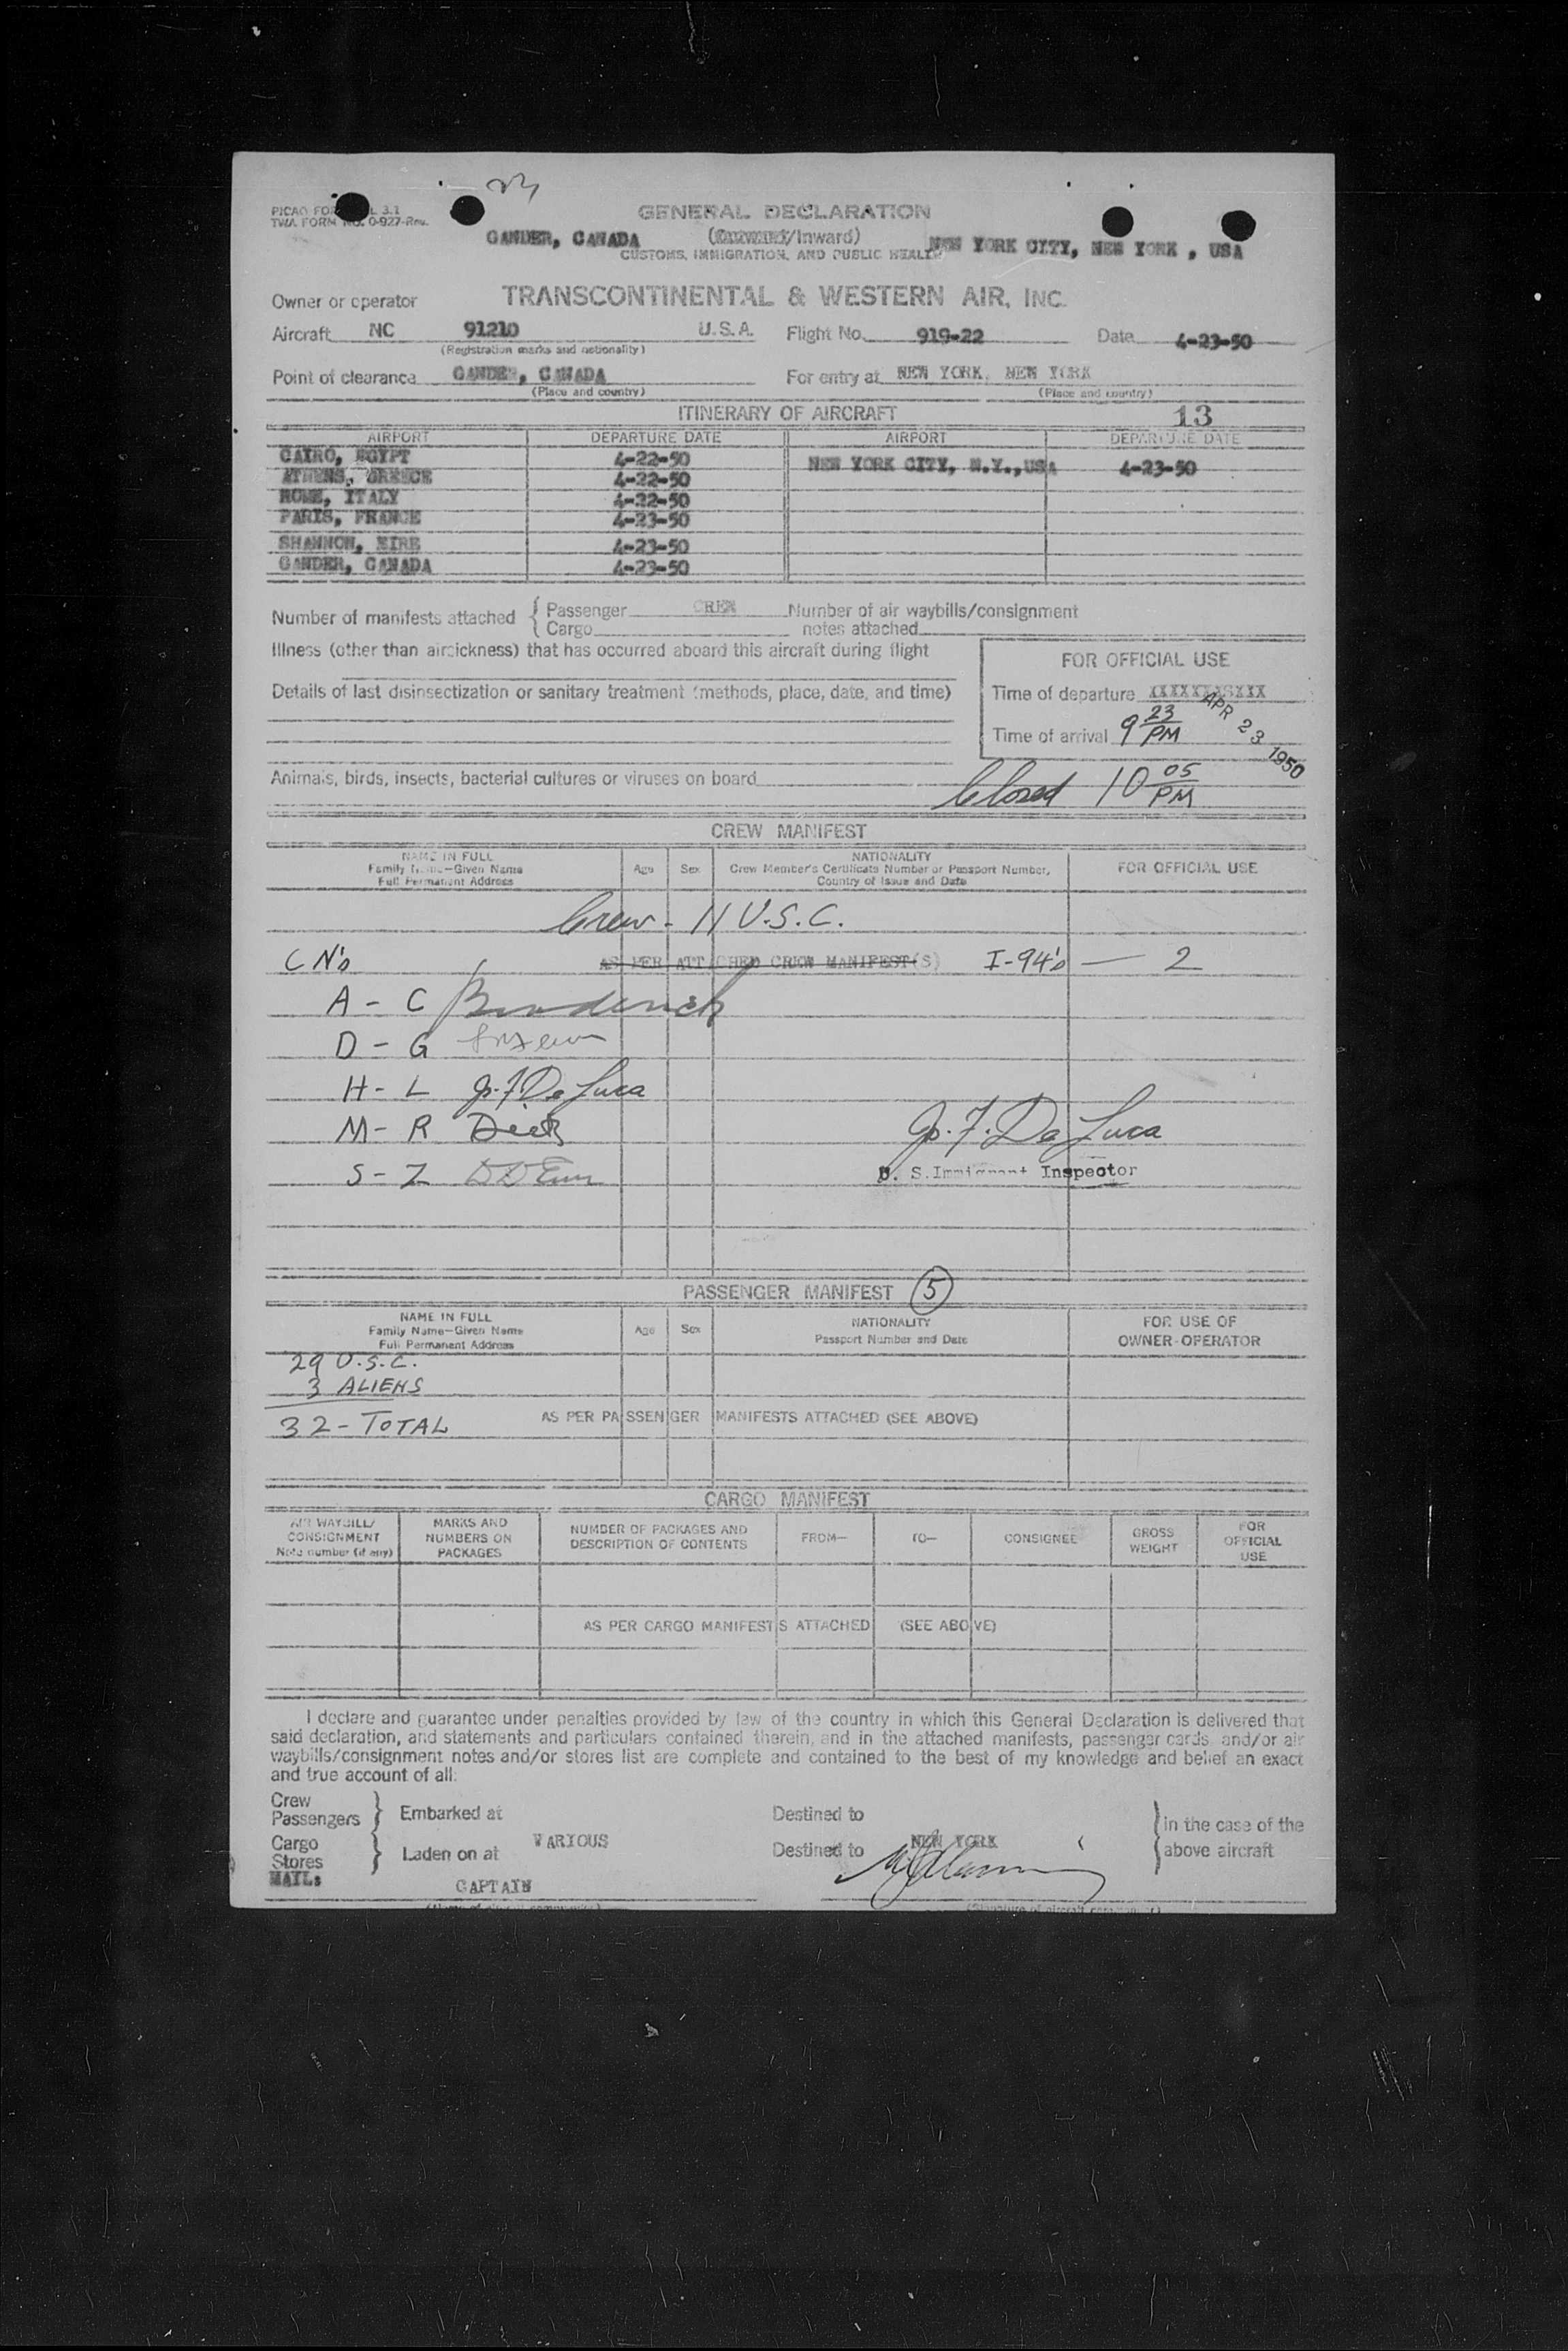 GENERAL DECLARATION
TWA FORM NO. 0-927-Rev.
GANDER, CANADA (Outward/Inward) NEW YORK CITY, NEW YORK , USA
CUSTOMS, IMMIGRATION, AND PUBLIC HEALTH
Owner or operator TRANSCONTINENTAL & WESTERN AIR, INC.
Aircraft NC 91210 U.S.A. Flight No. 919-22 Date 4-23-50
(Registration marks and nationality)
Point of clearance GANDER, CANADA For entry at NEW YORK, NEW YORK
(Place and country) (Place and country)
ITINERARY OF AIRCRAFT 13
AIRPORT DEPARTURE DATE AIRPORT DEPARTURE DATE
CAIRO, EGYPT 4-22-50 NEW YORK CITY, N.Y.,USA 4-23-50
ATHENS, GREECE 4-22-50
ROME, ITALY 4-22-50
PARIS, FRANCE 4-23-50
SHANNON, EIRE 4-23-50
GANDER, CANADA 4-23-50
Number of manifests attached { Passenger CREW Number of air waybills/consignment
Cargo notes attached
Illness (other than airsickness) that has occurred aboard this aircraft during flight
FOR OFFICIAL USE
Details of last disinsectization or sanitary treatment (methods, place, date, and time)
Time of departure
Time of arrival 9 23 PM APR 23 1950
Animals, birds, insects, bacterial cultures or viruses on board
Closed 10 05 PM
CREW MANIFEST
NAME IN FULL Age Sex NATIONALITY FOR OFFICIAL USE
Family Name—Given Name Crew Member's Certificate Number or Passport Number,
Full Permanent Address Country of Issue and Date
Crew - 11 U.S.C.
C N's AS PER ATTACHED CREW MANIFEST(S) I-94's — 2
A - C
D - G
H - L Jo. F. De Luca
M - R
S - Z
Jo. F. De Luca
U. S. Immigrant Inspector
PASSENGER MANIFEST 5
NAME IN FULL Age Sex NATIONALITY FOR USE OF
Family Name—Given Name Passport Number and Date OWNER-OPERATOR
Full Permanent Address
29 U.S.C.
3 ALIENS
32 - TOTAL AS PER PASSENGER MANIFESTS ATTACHED (SEE ABOVE)
CARGO MANIFEST
AIR WAYBILL/ CONSIGNMENT Note number (if any) MARKS AND NUMBERS ON PACKAGES NUMBER OF PACKAGES AND DESCRIPTION OF CONTENTS FROM— TO— CONSIGNEE GROSS WEIGHT FOR OFFICIAL USE
AS PER CARGO MANIFESTS ATTACHED (SEE ABOVE)
I declare and guarantee under penalties provided by law of the country in which this General Declaration is delivered that
said declaration, and statements and particulars contained therein, and in the attached manifests, passenger cards, and/or air
waybills/consignment notes and/or stores list are complete and contained to the best of my knowledge and belief an exact
and true account of all:
Crew
Passengers } Embarked at Destined to } in the case of the
Cargo
Stores } Laden on at VARIOUS Destined to NEW YORK above aircraft
MAIL:
CAPTAIN